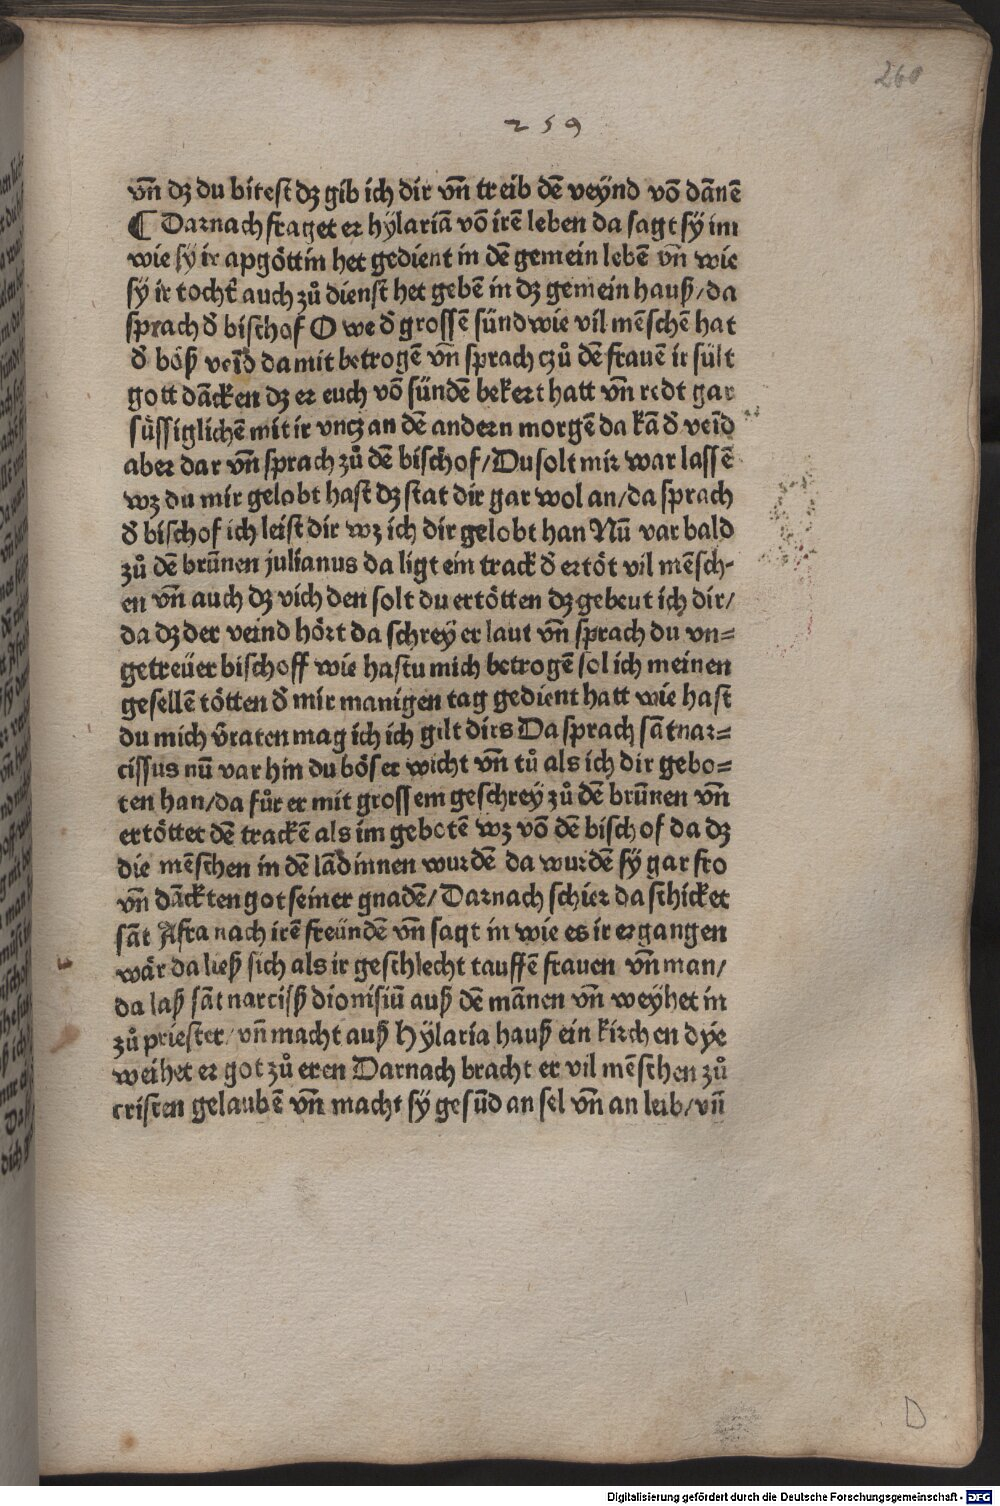 260
259
vñ dʒ du bitest dʒ gib ich dir vñ treib dē veÿnd vō dānē
¶ Darnach fraget er hÿlariā vō irē leben da sagt sÿ im
wie sÿ ir apgöttin het gedient in dē gemein lebē vñ wie
sÿ ir tocht̄ auch zů dienst het gebē in dʒ gemein hauß/da
sprach d̄ bischof O we d̄ grossē sünd wie vil mēschē hat
d̄ böß veīd damit betrogē vñ sprach czů dē frauē ir sült
gott dācken dʒ er euch vō sündē bekert hatt vñ redt gar
süssiglichē mit ir vncz an dē andern morgē da kā d̄ veīd
aber dar vñ sprach zů dē bischof/Du solt mir war lassē
wʒ du mir gelobt hast dʒ stat dir gar wol an/da sprach
d̄ bischof ich leist dir wʒ ich dir gelobt han Nū var bald
zů dē brūnen julianus da ligt ein track d̄ ertöt vil mēsch-
en vñ auch dʒ vich den solt du ertötten dʒ gebeut ich dir/
da dʒ der veind hört da schreÿ er laut vñ sprach du vn=
getreüer bischoff wie hastu mich betrogē sol ich meinen
gesellē tötten d̄ mir manigen tag gedient hatt wie hast
du mich v̄raten mag ich ich gilt dirs Da sprach sāt nar=
cissus nū var hin du böser wicht vñ tů als ich dir gebo=
ten han/da fůr er mit grossem geschreÿ zů dē brūnen vñ
ertöttet dē trackē als im gebotē wʒ vō dē bischof da dʒ
die mēschen in dē lād innen wurdē da wurdē sÿ gar fro
vñ dāckten got seiner gnadē/Darnach schier da schicket
sāt Afra nach irē freündē vñ sagt in wie es ir ergangen
wär da ließ sich als ir geschlecht tauffē frauen vñ man/
da laß sāt narciß dionisiū auß dē mānen vñ weÿhet in
zů priester/vñ macht auß Hÿlaria hauß ein kirchen dÿe
weihet er got zů eren Darnach bracht er vil mēschen zů
cristen gelaubē vñ macht sÿ gesūd an sel vñ an leib/vñ
D
Digitalisierung gefördert durch die Deutsche Forschungsgemeinschaft - DFG